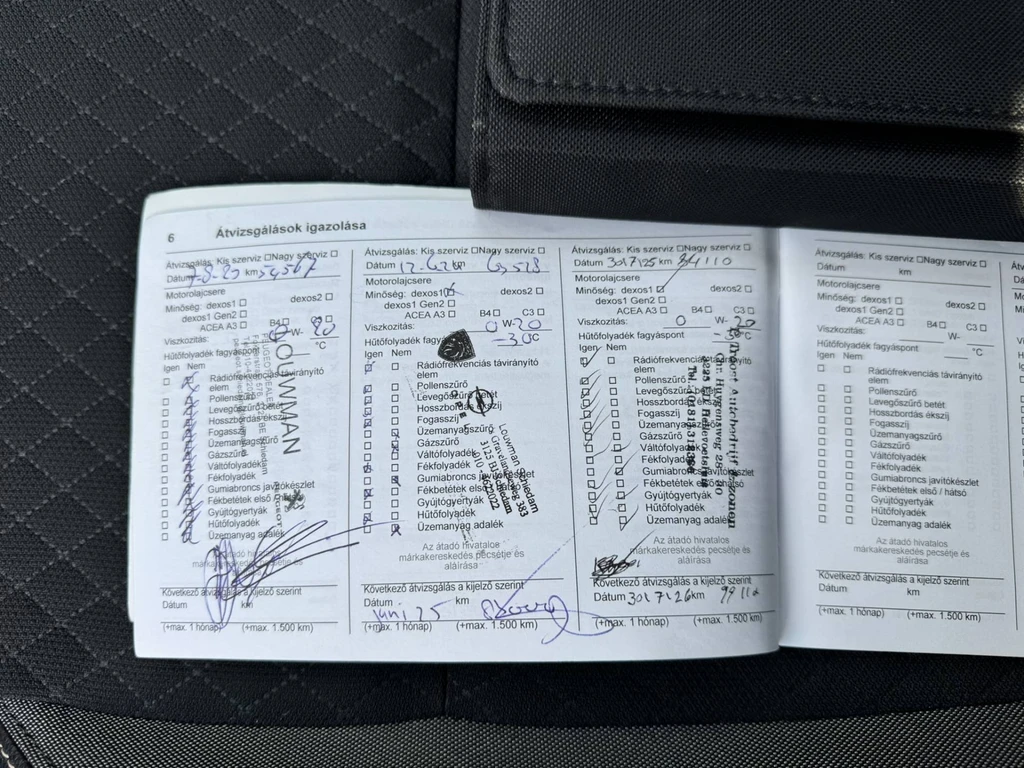 6 Átvizsgálások igazolása
Átvizsgálás: Kis szerviz Nagy szerviz
Dátum -8-20 km 54567
Motorolajcsere
Minőség: dexos1 dexos2
dexos1 Gen2
ACEA A3 B4 C3
Viszkozitás: 0 W- 20
Hűtőfolyadék fagyáspont °C
Igen Nem
Rádiófrekvenciás távirányító
elem
Pollenszűrő
Levegőszűrő betét
Hosszbordás ékszíj
Fogasszíj
Üzemanyagszűrő
Gázszűrő
Váltófolyadék
Fékfolyadék
Gumiabroncs javítókészlet
Fékbetétek első / hátsó
Gyújtógyertyák
Hűtőfolyadék
Üzemanyag adalék
LOUWMAN
PEUGEOT
Az átadó hivatalos
márkakereskedés pecsétje és
aláírása
Következő átvizsgálás a kijelző szerint
Dátum km
(+max. 1 hónap) (+max. 1.500 km)
Átvizsgálás: Kis szerviz Nagy szerviz
Dátum km 65528
Motorolajcsere
Minőség: dexos1 dexos2
dexos1 Gen2
ACEA A3 B4 C3
Viszkozitás: 0 W- 20
Hűtőfolyadék fagyáspont -30 °C
Igen Nem
Rádiófrekvenciás távirányító
elem
Pollenszűrő
Levegőszűrő betét
Hosszbordás ékszíj
Fogasszíj
Üzemanyagszűrő
Gázszűrő
Váltófolyadék
Fékfolyadék
Gumiabroncs javítókészlet
Fékbetétek első
Gyújtógyertyák
Hűtőfolyadék
Üzemanyag adalék
Louwman Schiedam
Gravelandseweg 383
3125 BJ Schiedam
Az átadó hivatalos
márkakereskedés pecsétje és
aláírása
Következő átvizsgálás a kijelző szerint
Dátum juni 25 km
(+max. 1 hónap) (+max. 1.500 km)
Átvizsgálás: Kis szerviz Nagy szerviz
Dátum 30\7\25 km 84110
Motorolajcsere
Minőség: dexos1 dexos2
dexos1 Gen2
ACEA A3 B4 C3
Viszkozitás: 0 W- 20
Hűtőfolyadék fagyáspont °C
Igen Nem
Rádiófrekvenciás távirányító
elem
Pollenszűrő
Levegőszűrő betét
Hosszbordás ékszíj
Fogasszíj
Üzemanyagszűrő
Gázszűrő
Váltófolyadék
Fékfolyadék
Gumiabroncs javítókészlet
Fékbetétek első / hátsó
Gyújtógyertyák
Hűtőfolyadék
Üzemanyag adalék
Autobedrijf
Chr. Huygensweg 28
Hellevoetsluis
Az átadó hivatalos
márkakereskedés pecsétje és
aláírása
Következő átvizsgálás a kijelző szerint
Dátum 30\7\26 km 99110
(+max. 1 hónap) (+max. 1.500 km)
Átvizsgálás: Kis szerviz Nagy szerviz
Dátum km
Motorolajcsere
Minőség: dexos1 dexos2
dexos1 Gen2
ACEA A3 B4 C3
Viszkozitás: W-
Hűtőfolyadék fagyáspont °C
Igen Nem
Rádiófrekvenciás távirányító
elem
Pollenszűrő
Levegőszűrő betét
Hosszbordás ékszíj
Fogasszíj
Üzemanyagszűrő
Gázszűrő
Váltófolyadék
Fékfolyadék
Gumiabroncs javítókészlet
Fékbetétek első / hátsó
Gyújtógyertyák
Hűtőfolyadék
Üzemanyag adalék
Az átadó hivatalos
márkakereskedés pecsétje és
aláírása
Következő átvizsgálás a kijelző szerint
Dátum km
(+max. 1 hónap) (+max. 1.500 km)